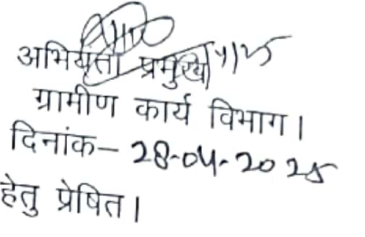 अभियंता प्रमुख
ग्रामीण कार्य विभाग।
दिनांक– 28-04-2025
हेतु प्रेषित।